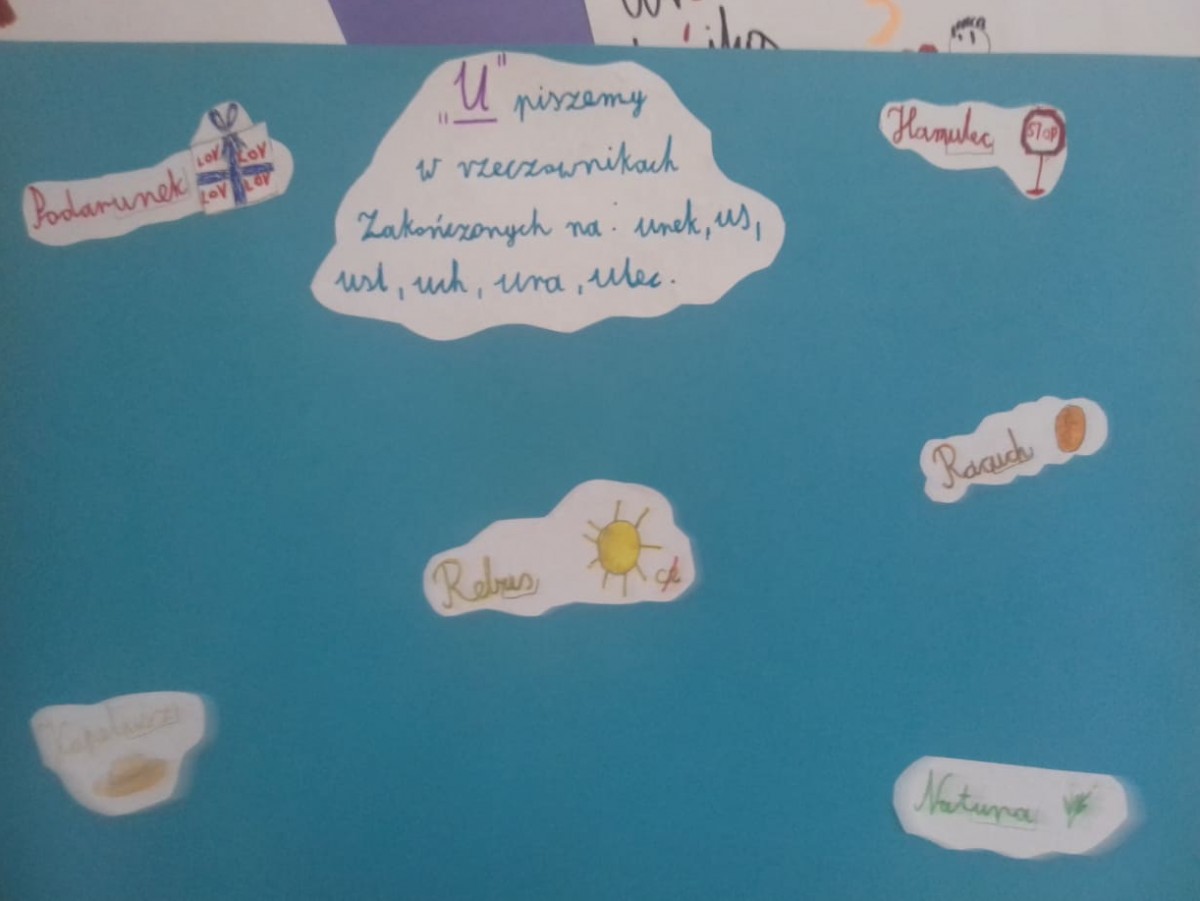 "U" piszemy
w rzeczownikach
Zakończonych na: unek, us,
usl, uch, ura, ulec.
Podarunek
LOV LOV
LOV LOV
Hamulec
STOP
Racuch
Rebus
Kapelusz
Natura